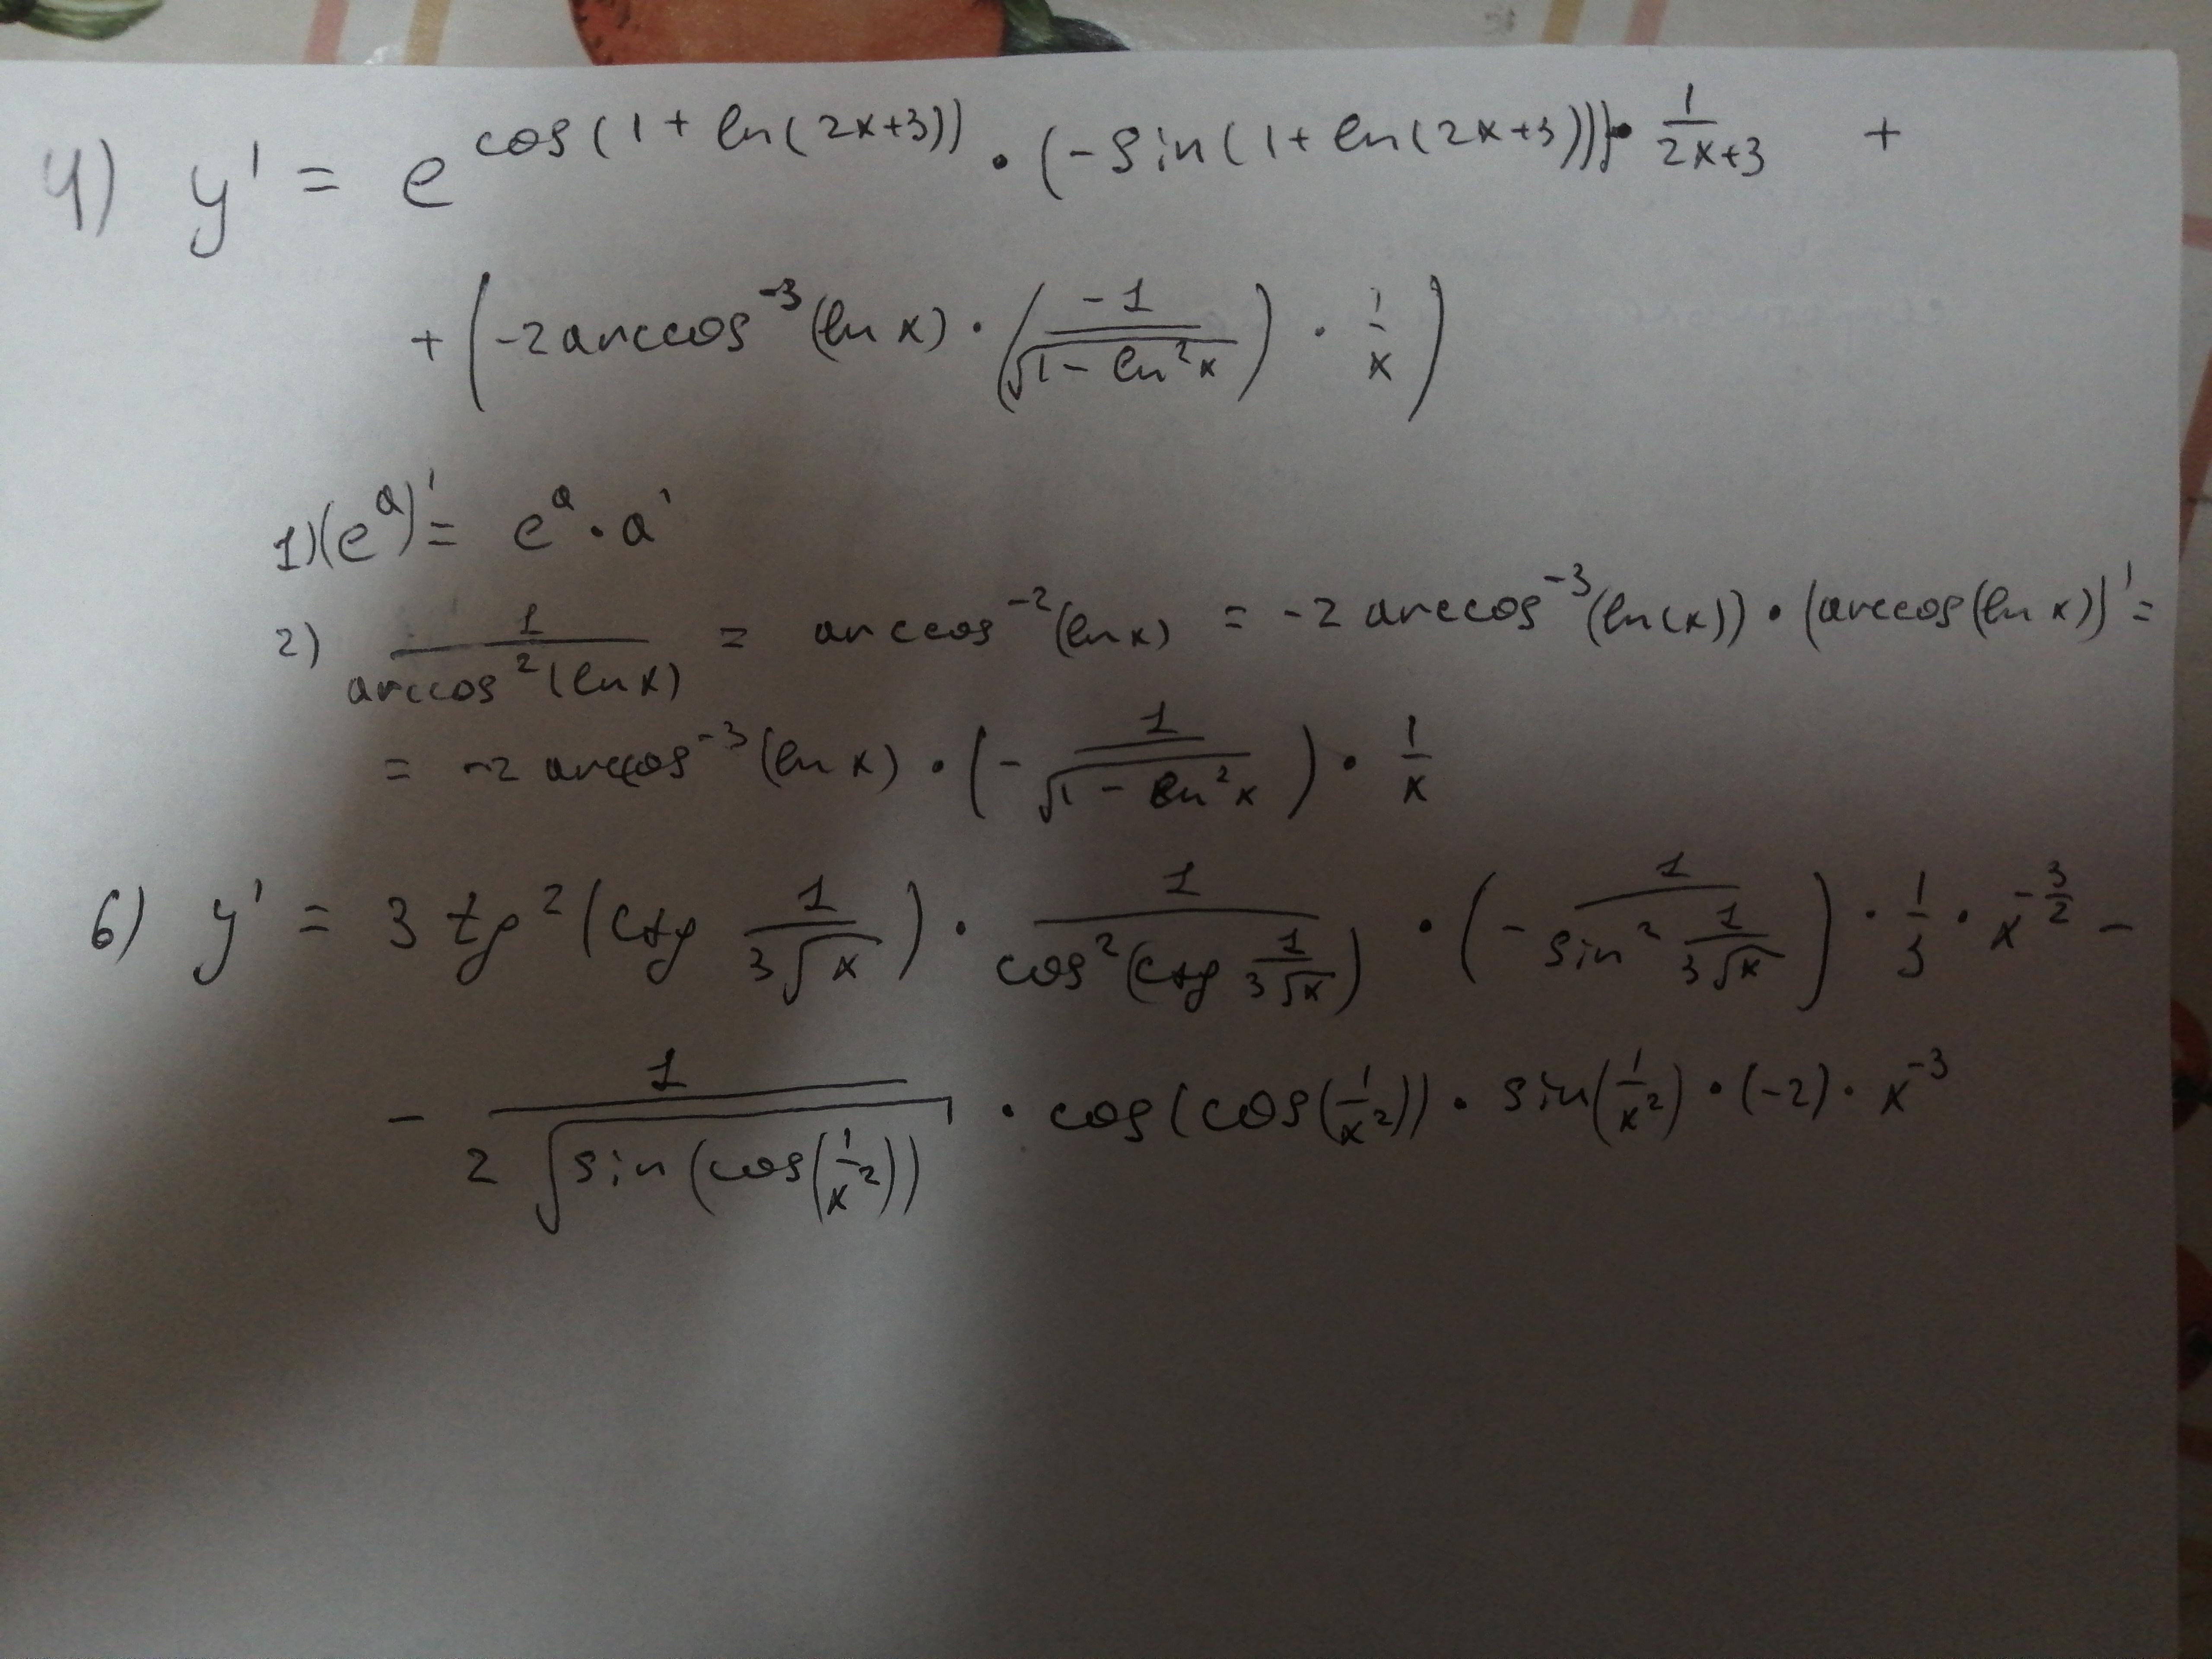 4) y' = e^{cos(1 + ln(2x+3))} · (-sin(1+ln(2x+3))) · \frac{1}{2x+3} +
+ (-2 arccos^{-3}(ln x) · (\frac{-1}{\sqrt{1 - ln^2 x}}) · \frac{1}{x})
1) (e^a)' = e^a · a'
2) \frac{1}{arccos^2(ln x)} = arccos^{-2}(ln x) = -2 arccos^{-3}(ln(x)) · (arccos(ln x))' =
= -2 arccos^{-3}(ln x) · (-\frac{1}{\sqrt{1 - ln^2 x}}) · \frac{1}{x}
6) y' = 3 tg^2(ctg \frac{1}{3\sqrt{x}}) · \frac{1}{cos^2(ctg \frac{1}{3\sqrt{x}})} · (-\frac{1}{sin^2 \frac{1}{3\sqrt{x}}}) · \frac{1}{3} · x^{-\frac{3}{2}} -
- \frac{1}{2\sqrt{sin(cos(\frac{1}{x^2}))}} · cos(cos(\frac{1}{x^2})) · sin(\frac{1}{x^2}) · (-2) · x^{-3}